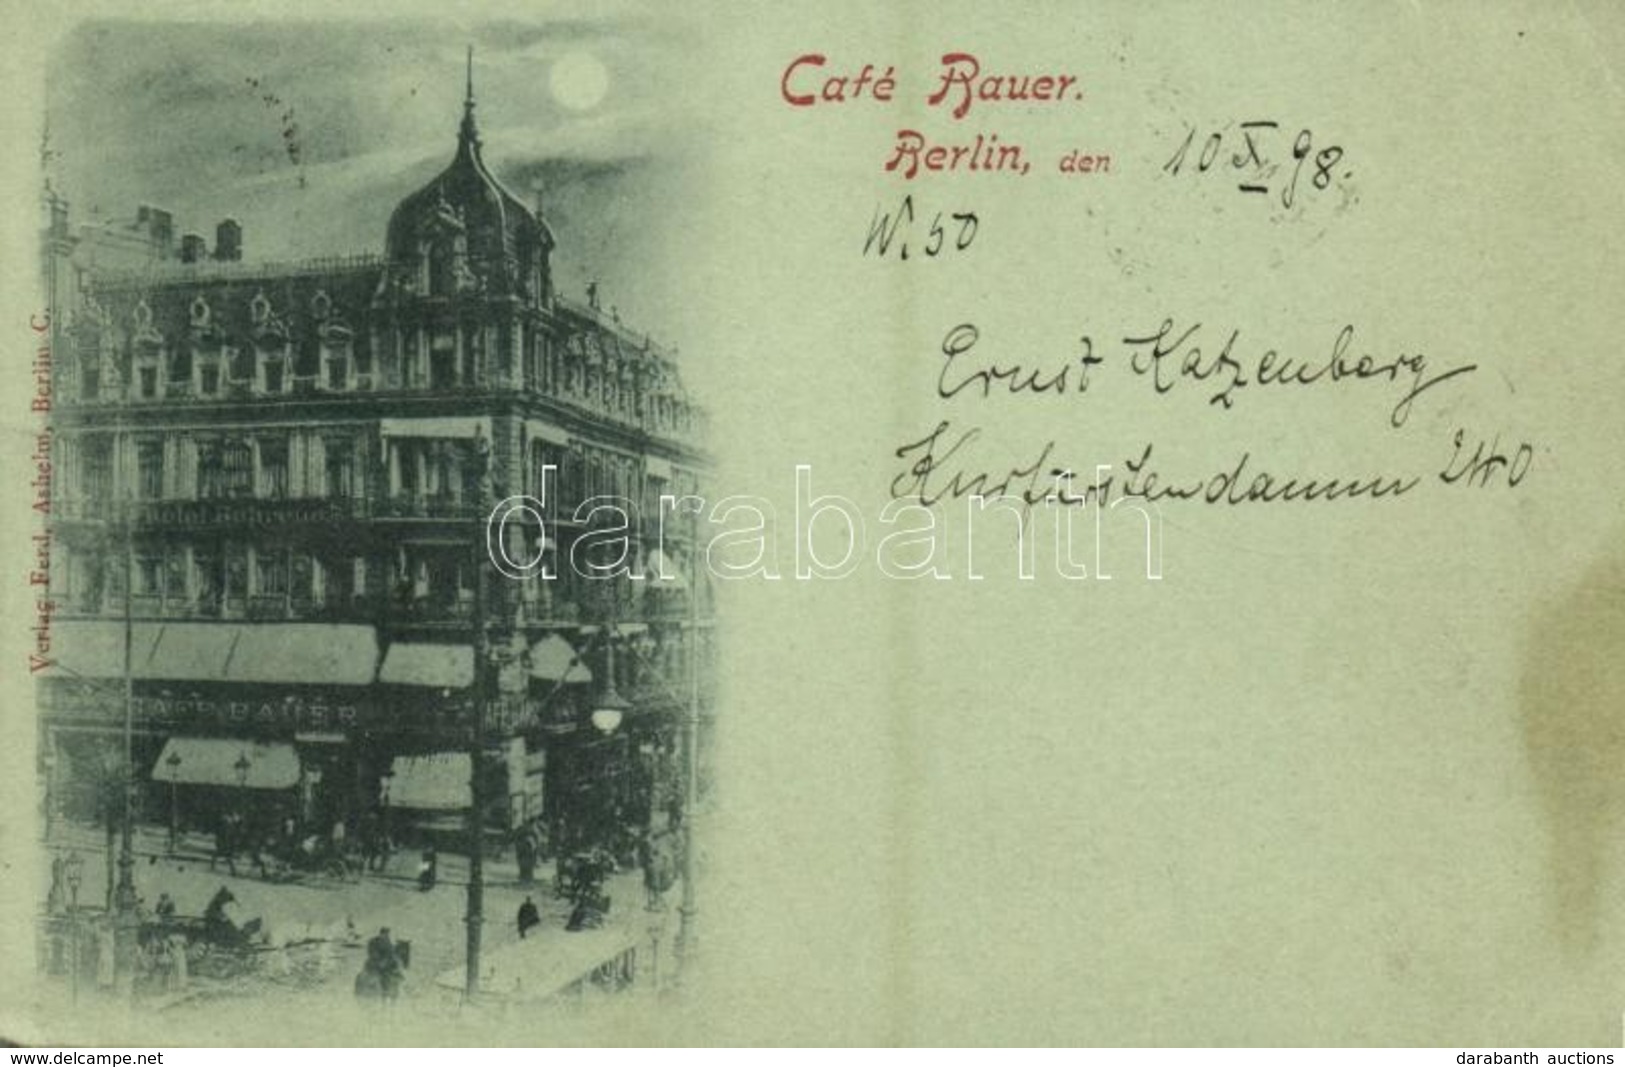 Café Bauer.
Berlin, den 10 X 98.
W. 50
Ernst Katzenberg
Kurfürstendamm 240
Verlag Ferd. Ashelm, Berlin C.
CAFÉ BAUER
darabanth
www.delcampe.net
darabanth auctions